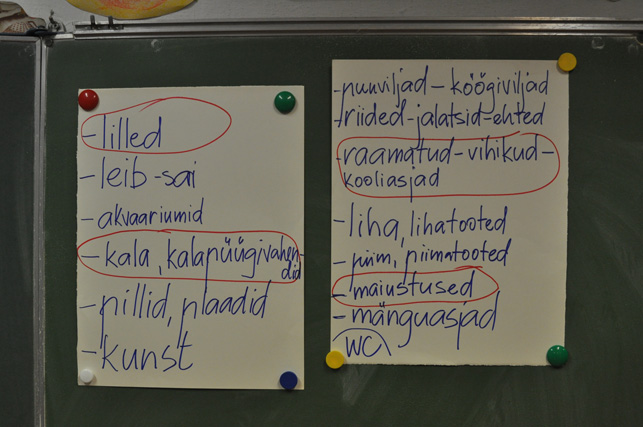 - lilled
- leib - sai
- akvaariumid
- kala, kalapüügivahen-
did
- pillid, plaadid
- kunst
- puuviljad - köögiviljad
- riided - jalatsid - ehted
- raamatud - vihikud -
kooliasjad
- liha, lihatooted
- piim, piimatooted
- maiustused
- mänguasjad
WC